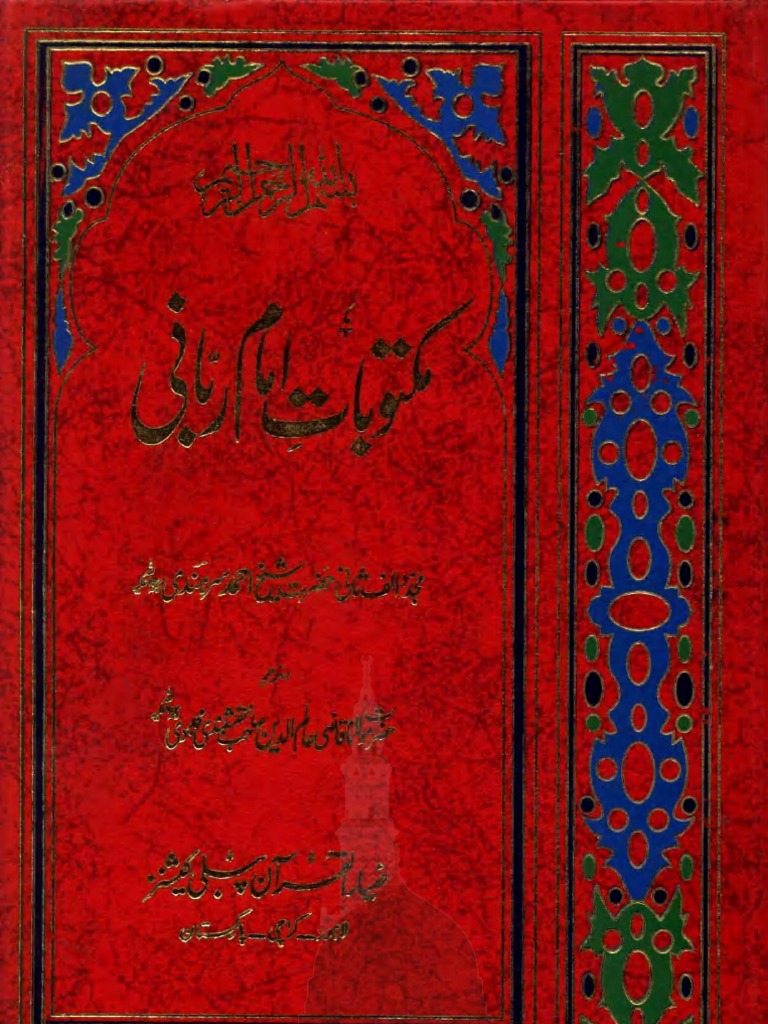 بسم الله الرحمن الرحيم
مکتوباتِ امام ربّانی
مجدد الف ثانی حضرت شیخ احمد سرہندی
حضرت مولانا قاضی عالم الدین صاحب نقشبندی مجددی
ضیاء القرآن پبلی کیشنز
لاہور - کراچی - پاکستان